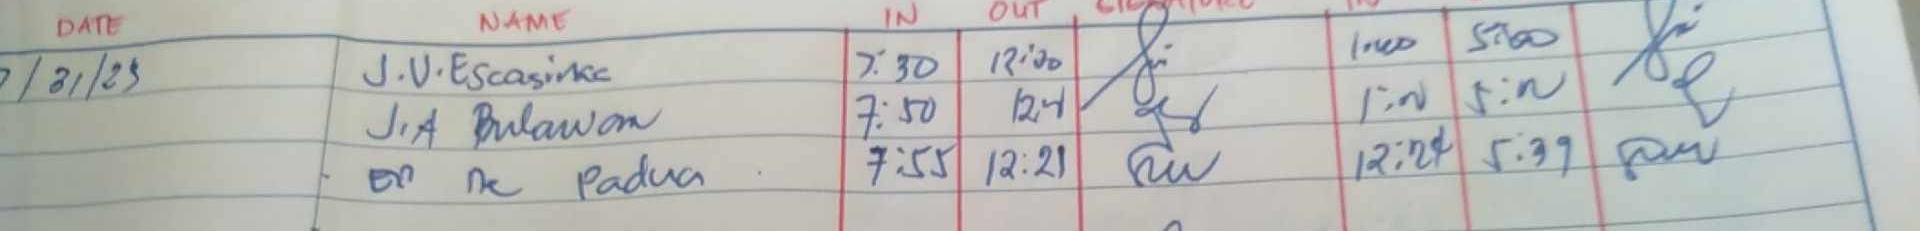 DATE NAME IN OUT SIGNATURE IN
7/31/23 J.V. Escasinas 7:30 12:00 1:00 5:00
J.A Bulawan 7:50 1:N 5:N
De Padua 7:55 12:21 12:24 5:39